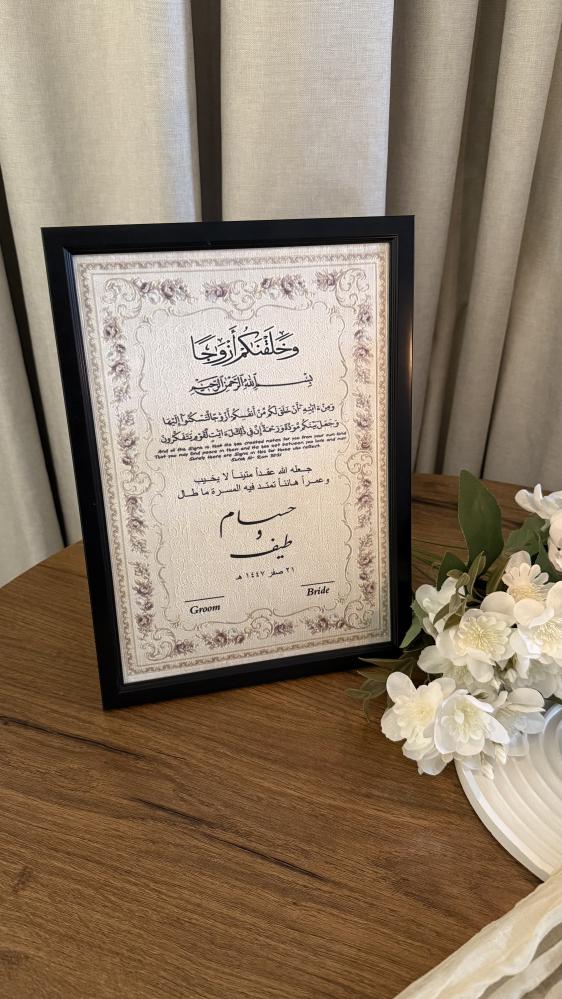 وَخَلَقْنَٰكُمْ أَزْوَٰجًا
بِسْمِ ٱللَّهِ ٱلرَّحْمَٰنِ ٱلرَّحِيمِ
وَمِنْ ءَايَٰتِهِۦٓ أَنْ خَلَقَ لَكُم مِّنْ أَنفُسِكُمْ أَزْوَٰجًا لِّتَسْكُنُوٓا۟ إِلَيْهَا
وَجَعَلَ بَيْنَكُم مَّوَدَّةً وَرَحْمَةً إِنَّ فِى ذَٰلِكَ لَءَايَٰتٍ لِّقَوْمٍ يَتَفَكَّرُونَ
And of His Signs is that He has created mates for you from your own kind
That you may find peace in them and He has set between you love and mercy
Surely there are signs in this for those who reflect.
Surah Ar- Rum 30:21
جعله الله عقداً متيناً لا يخيب
وعمراً هانئاً تمتد فيه المسرة ما طال
حسام
و
طيف
٢١ صفر ١٤٤٧ هـ
Groom
Bride